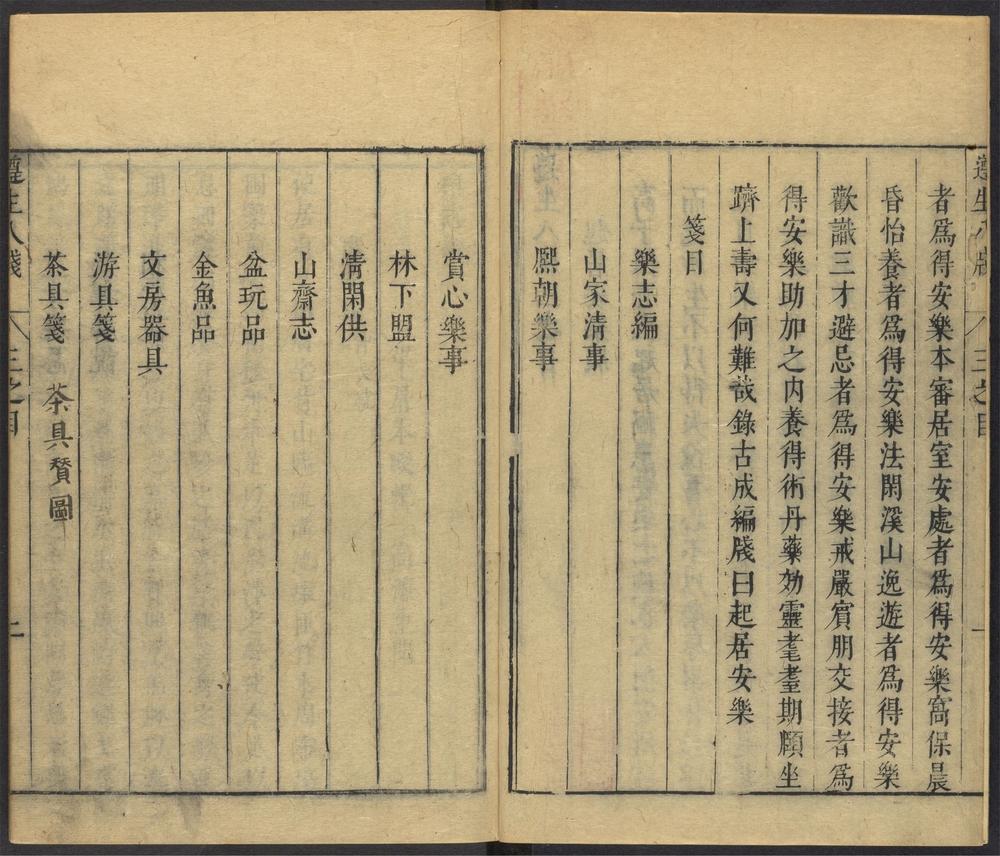 遵生八牋 八 三之目 一
者爲得安樂本審居室安處者爲得安樂窩保晨
昏怡養者爲得安樂法閑溪山逸遊者爲得安樂
歡識三才避忌者爲得安樂戒嚴賓朋交接者爲
得安樂助加之內養得術丹藥効靈耄耋期頤坐
躋上壽又何難哉錄古成編牋曰起居安樂
箋目
樂志編
山家清事
熙朝樂事
賞心樂事
林下盟
清閑供
山齋志
盆玩品
金魚品
文房器具
游具箋
茶具箋 茶具贊圖
遵生八牋 八 三之目 二